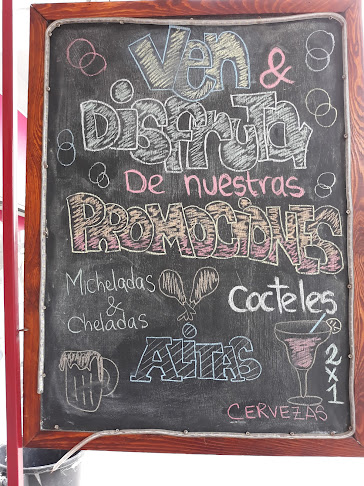 Ven &
Disfrutar
De nuestras
PROMOCIONES
Micheladas
&
Cheladas
Cocteles
2x1
ALITAS
CERVEZAS